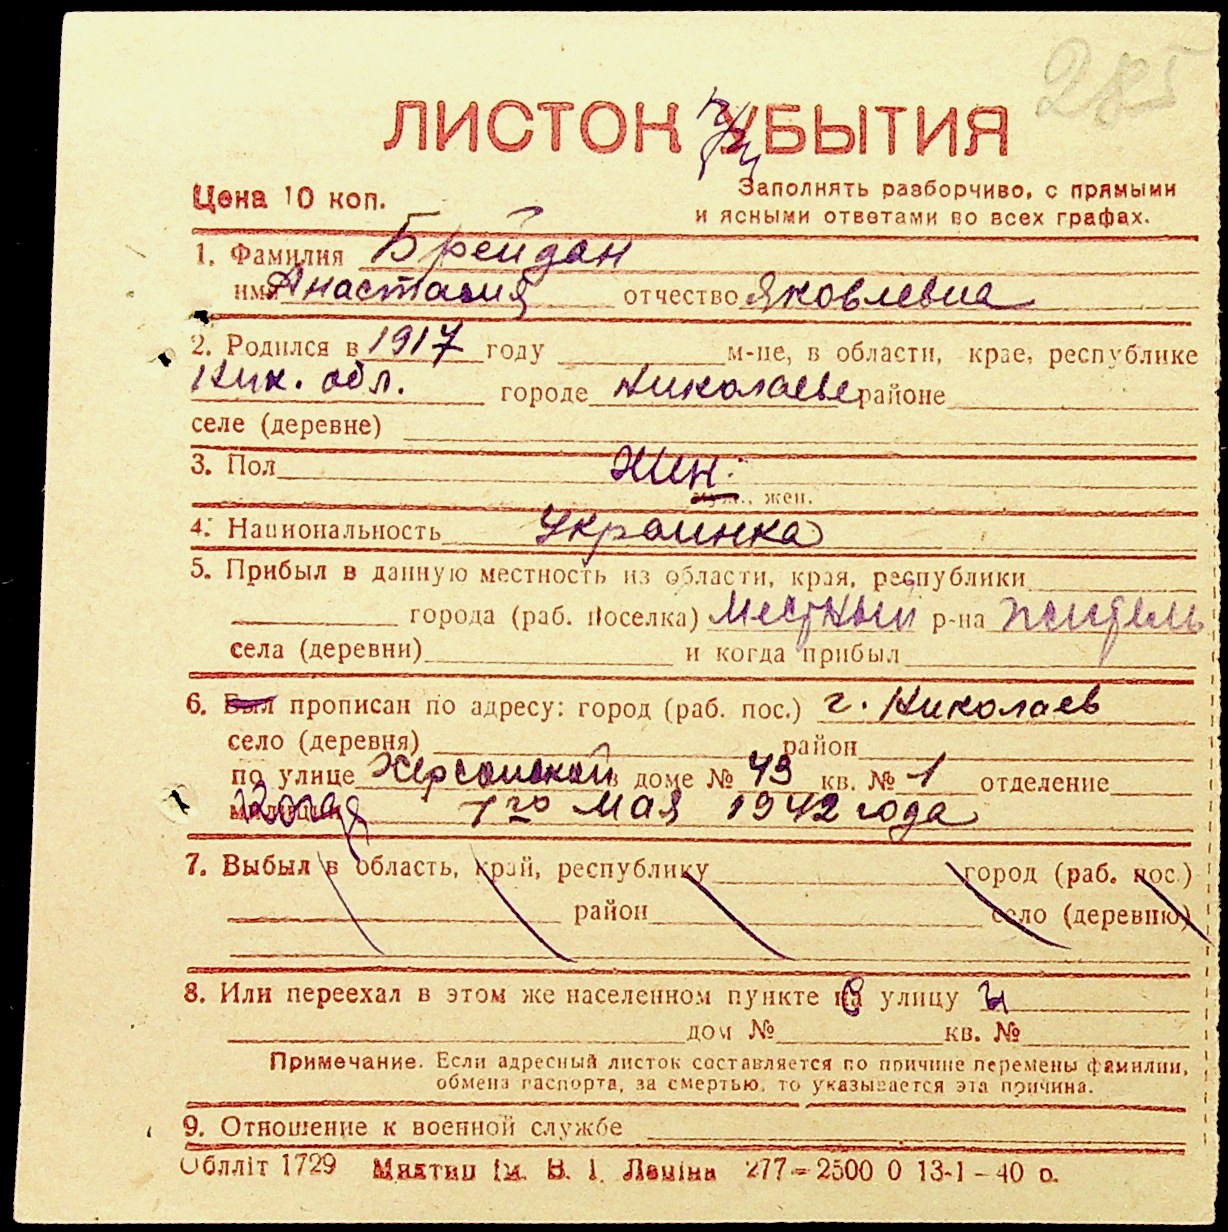 285
ЛИСТОК УБЫТИЯ
Цена 10 коп.
Заполнять разборчиво, с прямыми
и ясными ответами во всех графах.
1. Фамилия Брейдан
имя Анастасия отчество Яковлевна
2. Родился в 1917 году м-це, в области, крае, республике
Ник. обл. городе Николаеве районе
селе (деревне)
3. Пол Жен.
муж., жен.
4. Национальность Украинка
5. Прибыл в данную местность из области, края, республики
города (раб. поселка) Местный р-на житель
села (деревни) и когда прибыл
6. Был прописан по адресу: город (раб. пос.) г. Николаев
село (деревня) район
по улице Херсонской в доме № 43 кв. № 1 отделение
милиции Когда 1го Мая 1942 года
7. Выбыл в область, край, республику город (раб. пос.)
район село (деревню)
8. Или переехал в этом же населенном пункте на улицу
дом № кв. №
Примечание. Если адресный листок составляется по причине перемены фамилии,
обмена паспорта, за смертью, то указывается эта причина.
9. Отношение к военной службе
Облліт 1729 Миктип ім. В. І. Леніна 277—2500 0 13-1-40 р.